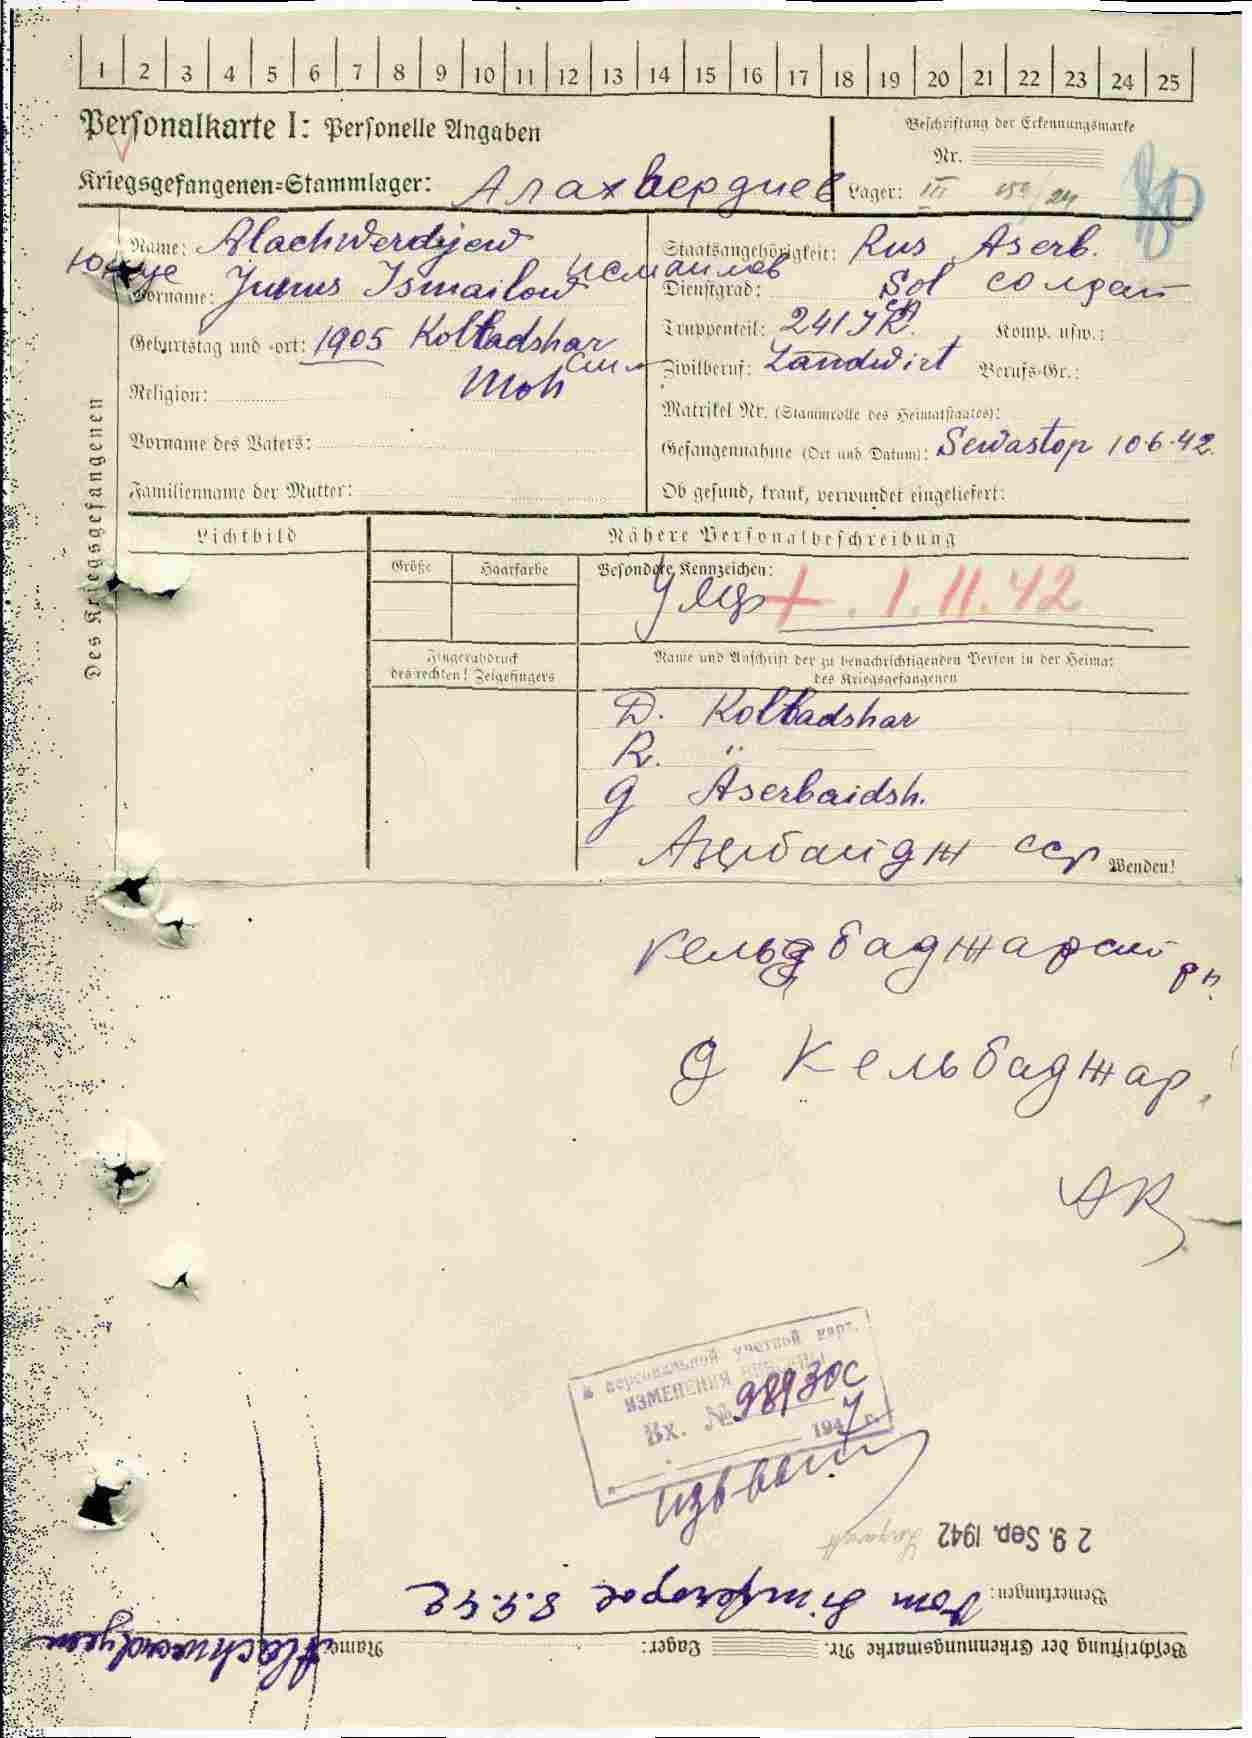 1 2 3 4 5 6 7 8 9 10 11 12 13 14 15 16 17 18 19 20 21 22 23 24 25
Personalkarte I: Personelle Angaben
Beschriftung der Erkennungsmarke
Nr.
Kriegsgefangenen-Stammlager: Алахвердиев
Lager: III
Des Kriegsgefangenen
Name: Alachwerdijew
Юнус Исмаилов
Vorname: Junus Ismailow
Geburtstag und -ort: 1905 Kolbadshar
Religion: Moh
Vorname des Vaters:
Familienname der Mutter:
Staatsangehörigkeit: Rus Aserb.
Dienstgrad: Sol солдат
Truppenteil: 241 J.R. Komp. usw.:
Zivilberuf: Landwirt Berufs-Gr.:
Matrikel Nr. (Stammrolle des Heimatstaates):
Gefangennahme (Ort und Datum): Sewastop 10.6.42.
Ob gesund, krank, verwundet eingeliefert:
Lichtbild
Nähere Personalbeschreibung
Größe
Haarfarbe
Besondere Kennzeichen:
умер + . 1.11.42
Fingerabdruck
des rechten! Zeigefingers
Name und Anschrift der zu benachrichtigenden Person in der Heimat
des Kriegsgefangenen
D. Kolbadshar
R. "
G Aserbaidsh.
Азербайдж сср
Wenden!
Кельбаджарский
рн.
д Кельбаджар.
к персональной учетной карт.
ИЗМЕНЕНИЯ
Вх. № 98930с
1947 г.
29. Sep. 1942
Bemerkungen: Vom Simferopol
Beschriftung der Erkennungsmarke Nr. Lager: Name: Alachwerdijew